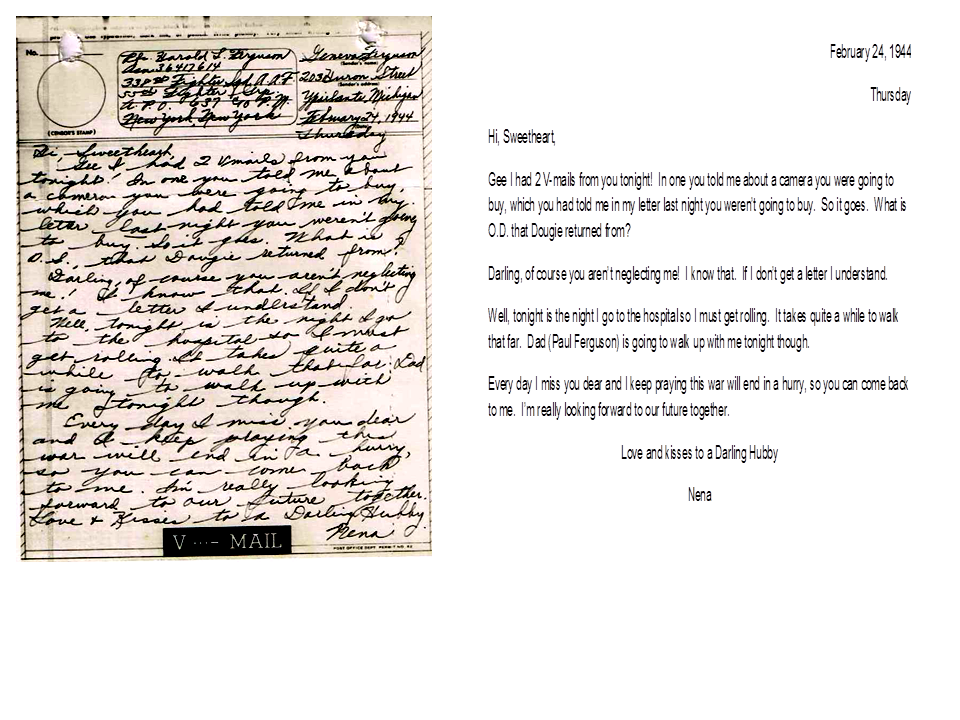 No.
(CENSOR'S STAMP)
Pfc. Harold L. Ferguson
Asn 36417614
338th Fighter Sqd. A.A.F
55th Fighter Grp.
A.P.O. 637 c/o P.M.
New York, New York
Geneva Ferguson
(Sender's name)
203 Huron Street
(Sender's address)
Ypsilanti, Michigan
February 24, 1944
Thursday
Hi, Sweetheart,
Gee I had 2 Vmails from you
tonight! In one you told me about
a camera you were going to buy,
which you had told me in my
letter last night you weren't going
to buy. So it goes. What is
O.S. that Dougie returned from?
Darling, of course you aren't neglecting
me! I know that. If I don't
get a letter I understand.
Well, tonight is the night I go
to the hospital so I must
get rolling. It takes quite a
while to walk that far. Dad
is going to walk up with
me tonight though.
Every day I miss you dear
and I keep praying this
war will end in a hurry,
so you can come back
to me. I'm really looking
forward to our future together.
Love & Kisses to a Darling Hubby
Nena
V···— MAIL
POST OFFICE DEPT. PERMIT NO.
February 24, 1944
Thursday
Hi, Sweetheart,
Gee I had 2 V-mails from you tonight! In one you told me about a camera you were going to
buy, which you had told me in my letter last night you weren't going to buy. So it goes. What is
O.D. that Dougie returned from?
Darling, of course you aren't neglecting me! I know that. If I don't get a letter I understand.
Well, tonight is the night I go to the hospital so I must get rolling. It takes quite a while to walk
that far. Dad (Paul Ferguson) is going to walk up with me tonight though.
Every day I miss you dear and I keep praying this war will end in a hurry, so you can come back
to me. I'm really looking forward to our future together.
Love and kisses to a Darling Hubby
Nena